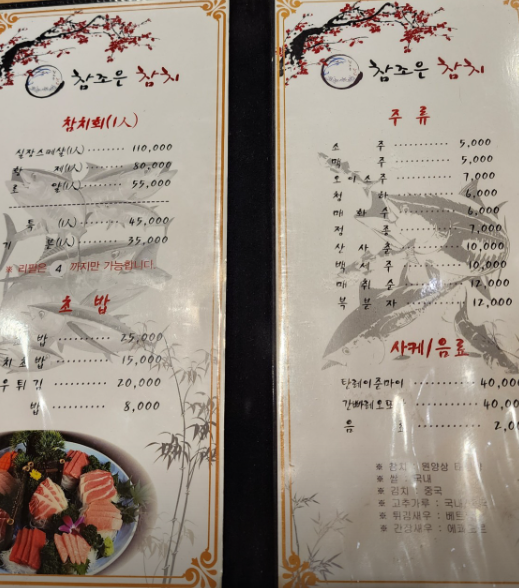 참조은 참치
참치회(1人)
실장스페샬(1人) 110,000
80,000
55,000
(1人) 45,000
본(1人) 35,000
※ 리필은 4 까지만 가능합니다.
초 밥
밥 25,000
치 초 밥 15,000
우 튀 김 20,000
밥 8,000
참조은 참치
주 류
소 주 5,000
맥 주 5,000
오 이 소 주 7,000
청 하 6,000
매 화 수 6,000
정 종 7,000
산 사 춘 10,000
백 세 주 10,000
매 취 순 12,000
복 분 자 12,000
사케/음료
탄레이쥰마이 40,000
간빠레오또 40,00
음 2,0
※ 참치 : 원양산
※ 쌀 : 국내
※ 김치 : 중국
※ 고추가루 : 국내
※ 튀김새우 : 베트
※ 간장새우 : 에콰도르